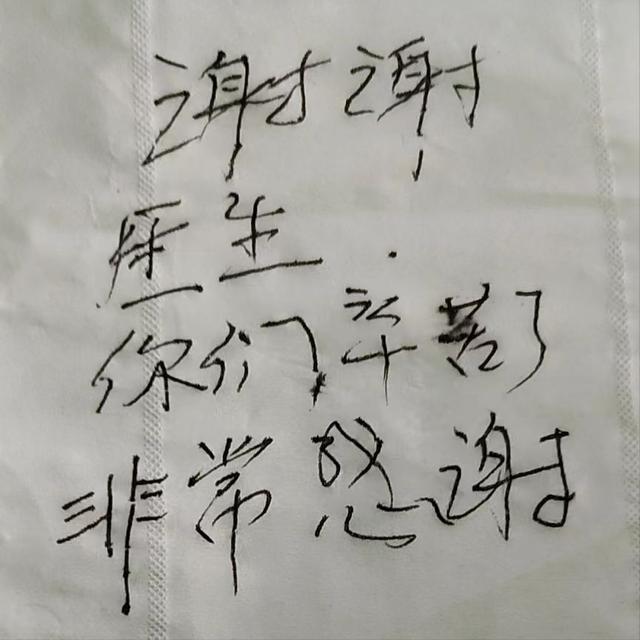 谢谢
医生
你们辛苦了
非常感谢